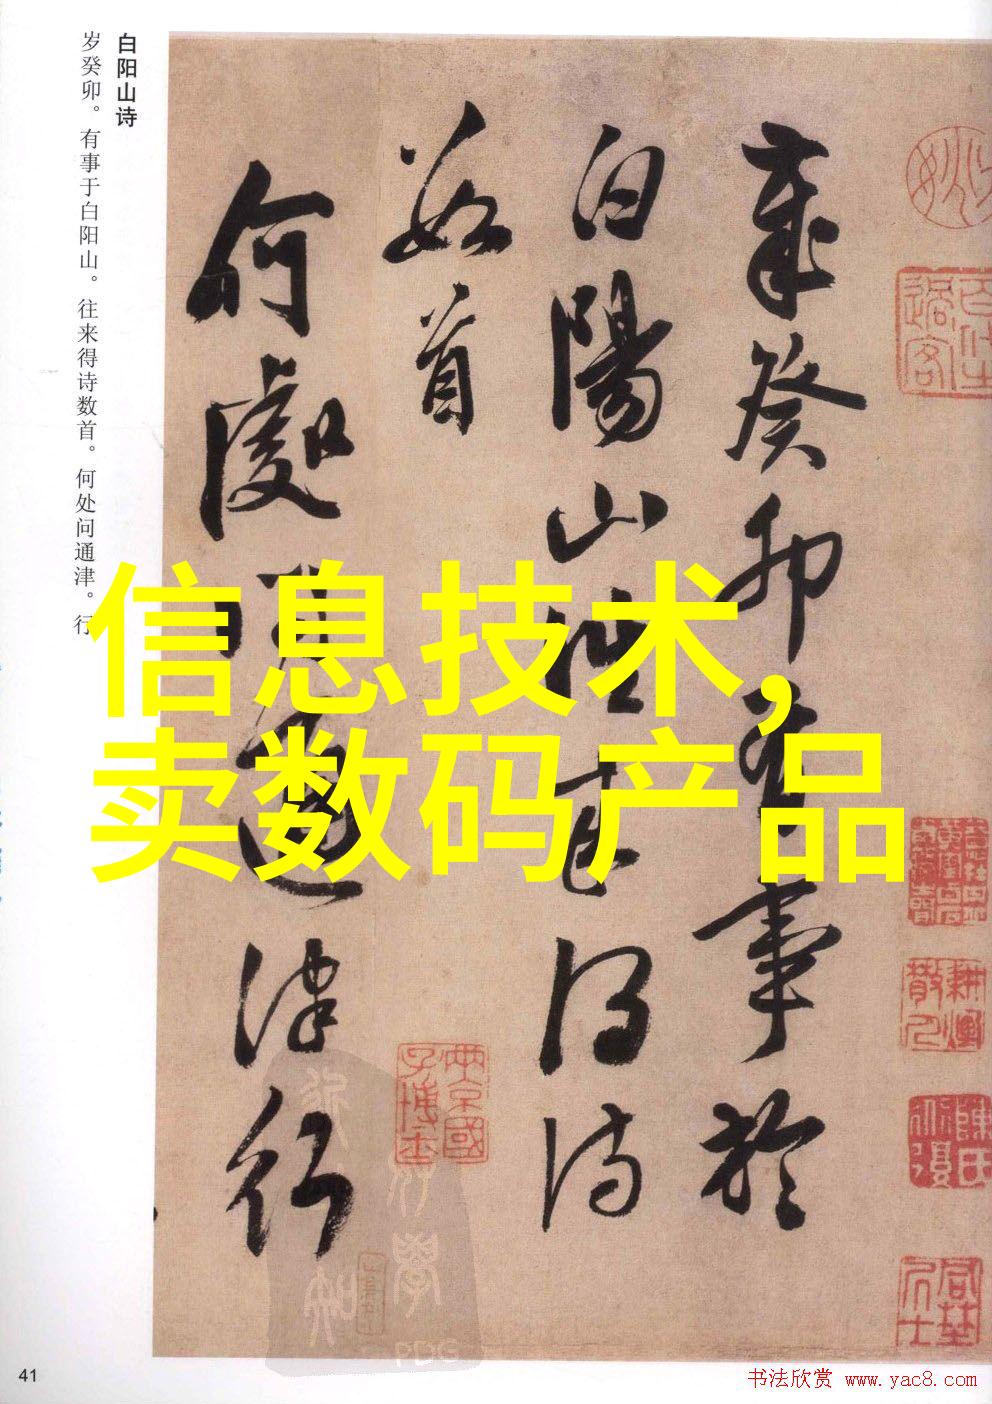 白阳山诗
岁癸卯。有事于白阳山。往来得诗数首。何处问通津。行
歲癸卯有事於
白陽山往来得诗
数首
何處問通津行
信息技术,
卖数码产品
耕煙散人
PDG
41
书法欣赏 www.yac8.com